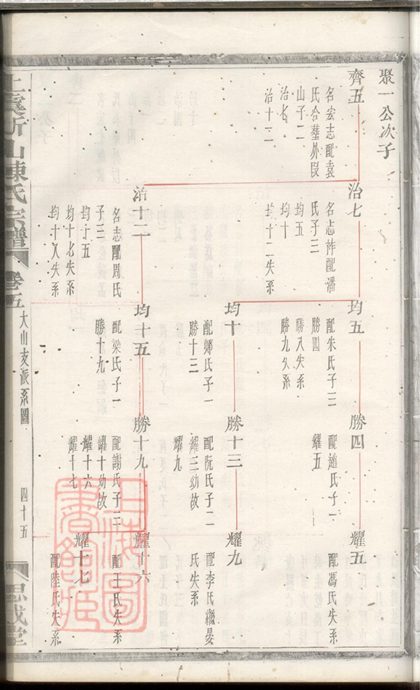 聚一公次子
齊五
名宏志配袁
氏合葬外段
山子二
治七
治十二
治七
名志祚配潘
氏子三
均五
均十
均十二失系
均五
配朱氏子三
勝四
勝八失系
勝九失系
勝四
配趙氏子一
耀五
耀五
配馮氏失系
均十
配鄭氏子一
勝十三
勝十三
配阮氏子二
耀三幼故
耀九
耀九
配李氏繼晏
氏失系
治十二
名志配周氏
子三
均十五
均十七失系
均十八失系
均十五
配梁氏子一
勝十九
勝十九
配謝氏子三
耀十幼故
耀十六
耀十七
耀十六
配王氏失系
耀十七
配陸氏失系
上虞新山陳氏宗譜
卷五
大山支派系圖
四十五
思成堂